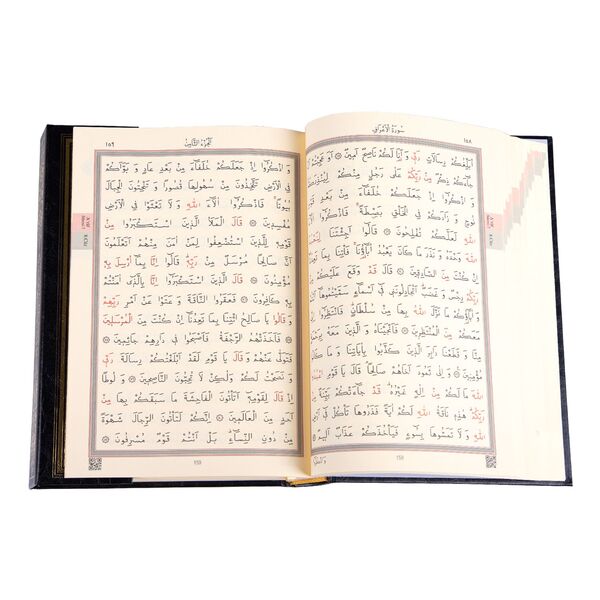 سُورَةُ الْاَعْرَافِ ١٥٨
اُبَلِّغُكُمْ رِسَالَاتِ رَبِّي وَاَنَا لَكُمْ نَاصِحٌ اَمِينٌ ۞ اَوَعَجِبْتُمْ اَنْ
جَاءَكُمْ ذِكْرٌ مِنْ رَبِّكُمْ عَلٰى رَجُلٍ مِنْكُمْ لِيُنْذِرَكُمْ
وَاذْكُرُوا اِذْ جَعَلَكُمْ خُلَفَاءَ مِنْ بَعْدِ قَوْمِ
نُوحٍ وَزَادَكُمْ فِي الْخَلْقِ بَصْطَةً فَاذْكُرُوا اٰلَاءَ
اللّٰهِ لَعَلَّكُمْ تُفْلِحُونَ ۞ قَالُوا اَجِئْتَنَا لِنَعْبُدَ
اللّٰهَ وَحْدَهُ وَنَذَرَ مَا كَانَ يَعْبُدُ اٰبَاؤُنَا فَأْتِنَا بِمَا تَعِدُنَا
اِنْ كُنْتَ مِنَ الصَّادِقِينَ ۞ قَالَ قَدْ وَقَعَ عَلَيْكُمْ مِنْ
رَبِّكُمْ رِجْسٌ وَغَضَبٌ اَتُجَادِلُونَنِي فِي اَسْمَاءٍ سَمَّيْتُمُوهَا اَنْتُمْ
وَاٰبَاؤُكُمْ مَا نَزَّلَ اللّٰهُ بِهَا مِنْ سُلْطَانٍ فَانْتَظِرُوا اِنِّي
مَعَكُمْ مِنَ الْمُنْتَظِرِينَ ۞ فَاَنْجَيْنَاهُ وَالَّذِينَ مَعَهُ بِرَحْمَةٍ
مِنَّا وَقَطَعْنَا دَابِرَ الَّذِينَ كَذَّبُوا بِاٰيَاتِنَا وَمَا كَانُوا
مُؤْمِنِينَ ۞ وَاِلٰى ثَمُودَ اَخَاهُمْ صَالِحًا قَالَ يَا قَوْمِ اعْبُدُوا
اللّٰهَ مَا لَكُمْ مِنْ اِلٰهٍ غَيْرُهُ قَدْ جَاءَتْكُمْ بَيِّنَةٌ مِنْ
رَبِّكُمْ هٰذِهِ نَاقَةُ اللّٰهِ لَكُمْ اٰيَةً فَذَرُوهَا تَأْكُلْ فِي اَرْضِ
اللّٰهِ وَلَا تَمَسُّوهَا بِسُوءٍ فَيَأْخُذَكُمْ عَذَابٌ اَلِيمٌ ۞
158
اَلْجُزْءُ الثَّامِنُ ١٥٩
وَاذْكُرُوا اِذْ جَعَلَكُمْ خُلَفَاءَ مِنْ بَعْدِ عَادٍ وَبَوَّاَكُمْ
فِي الْاَرْضِ تَتَّخِذُونَ مِنْ سُهُولِهَا قُصُورًا وَتَنْحِتُونَ الْجِبَالَ
بُيُوتًا فَاذْكُرُوا اٰلَاءَ اللّٰهِ وَلَا تَعْثَوْا فِي الْاَرْضِ
مُفْسِدِينَ ۞ قَالَ الْمَلَاُ الَّذِينَ اسْتَكْبَرُوا مِنْ
قَوْمِهِ لِلَّذِينَ اسْتُضْعِفُوا لِمَنْ اٰمَنَ مِنْهُمْ اَتَعْلَمُونَ
اَنَّ صَالِحًا مُرْسَلٌ مِنْ رَبِّهِ قَالُوا اِنَّا بِمَا اُرْسِلَ بِهِ
مُؤْمِنُونَ ۞ قَالَ الَّذِينَ اسْتَكْبَرُوا اِنَّا بِالَّذِي اٰمَنْتُمْ
بِهِ كَافِرُونَ ۞ فَعَقَرُوا النَّاقَةَ وَعَتَوْا عَنْ اَمْرِ رَبِّهِمْ
وَقَالُوا يَا صَالِحُ ائْتِنَا بِمَا تَعِدُنَا اِنْ كُنْتَ مِنَ الْمُرْسَلِينَ
۞ فَاَخَذَتْهُمُ الرَّجْفَةُ فَاَصْبَحُوا فِي دَارِهِمْ جَاثِمِينَ ۞
فَتَوَلّٰى عَنْهُمْ وَقَالَ يَا قَوْمِ لَقَدْ اَبْلَغْتُكُمْ رِسَالَةَ رَبِّي
وَنَصَحْتُ لَكُمْ وَلٰكِنْ لَا تُحِبُّونَ النَّاصِحِينَ ۞ وَلُوطًا
اِذْ قَالَ لِقَوْمِهِ اَتَأْتُونَ الْفَاحِشَةَ مَا سَبَقَكُمْ بِهَا مِنْ
اَحَدٍ مِنَ الْعَالَمِينَ ۞ اِنَّكُمْ لَتَأْتُونَ الرِّجَالَ شَهْوَةً
مِنْ دُونِ النِّسَاءِ بَلْ اَنْتُمْ قَوْمٌ مُسْرِفُونَ ۞
159